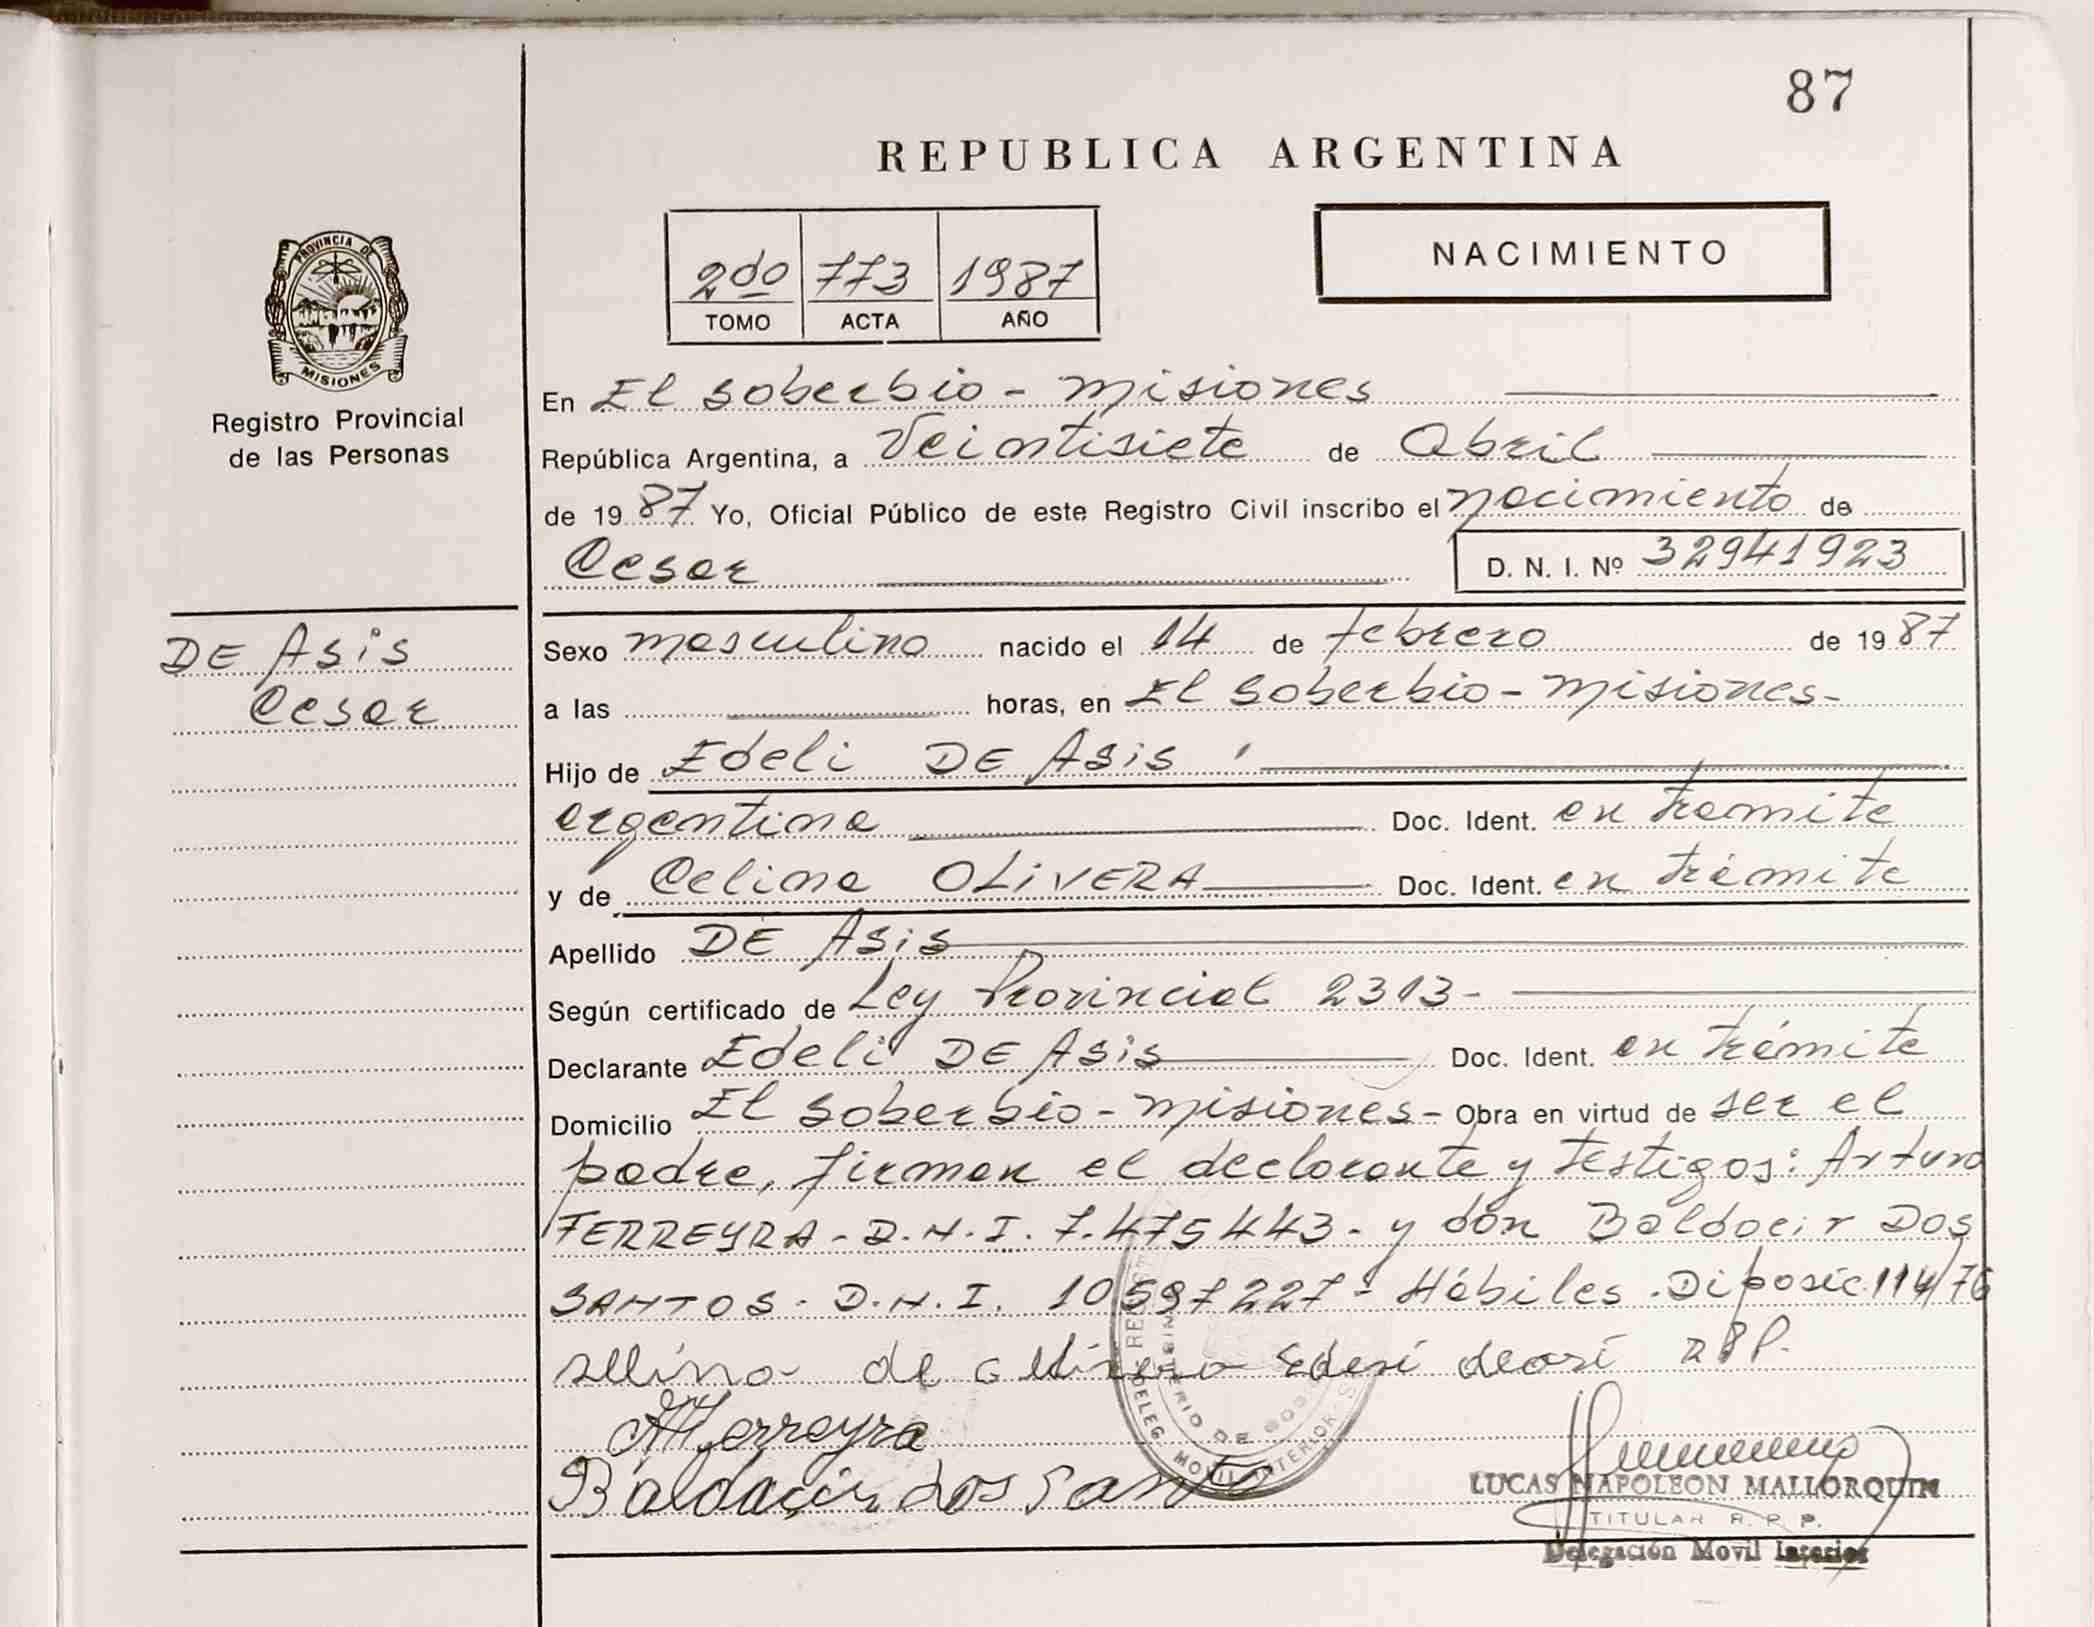 87
REPUBLICA ARGENTINA
2do 773 1987
TOMO ACTA AÑO
NACIMIENTO
PROVINCIA DE
MISIONES
Registro Provincial
de las Personas
En El Soberbio - Misiones
República Argentina, a Veintisiete de Abril
de 1987 Yo, Oficial Público de este Registro Civil inscribo el nacimiento de
Cesar D. N. I. Nº 32941923
DE Asis
Cesar
Sexo masculino nacido el 14 de febrero de 1987
a las horas, en El Soberbio - Misiones -
Hijo de Edeli DE Asis
argentina Doc. Ident. en tramite
y de Celina OLIVERA Doc. Ident. en trámite
Apellido DE Asis
Según certificado de Ley Provincial 2313 -
Declarante Edeli DE Asis Doc. Ident. en trámite
Domicilio El Soberbio - Misiones - Obra en virtud de ser el
padre, firman el declarante y testigos: Arturo
FERREYRA - D.N.I. 7.475443 - y don Baldocir Dos
SANTOS - D.N.I. 10597227 - Hábiles . Diposic. 114/76
de
Ferreyra
Baldacir dos Santo
DELEG. MOVIL INTERIOR
LUCAS NAPOLEON MALLORQUIN
TITULAR R. P. P.
Delegación Movil Interior